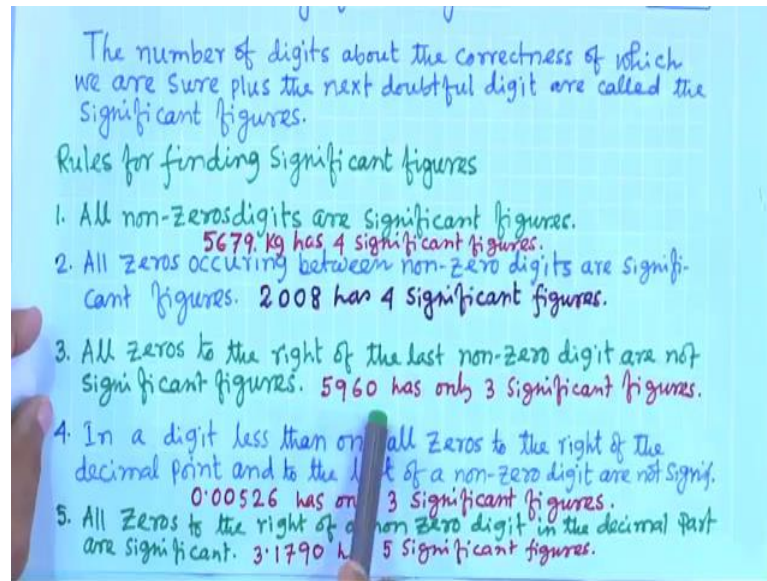 The number of digits about the correctness of which
we are sure plus the next doubtful digit are called the
Significant figures.
Rules for finding Significant figures
1. All non-zerosdigits are significant figures.
5679. kg has 4 significant figures.
2. All zeros occuring between non-zero digits are signifi-
cant figures. 2008 has 4 Significant figures.
3. All zeros to the right of the last non-zero digit are not
significant figures. 5960 has only 3 Significant figures.
4. In a digit less than on all zeros to the right of the
decimal point and to the l t of a non-zero digit are not signif.
0.00526 has on 3 Significant figures.
5. All zeros to the right of a non zero digit in the decimal part
are significant. 3.1790 h 5 Significant figures.